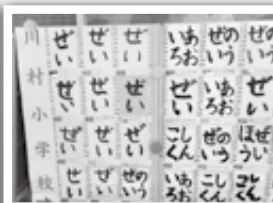 川村小学校
ぜい ぜい ぜい いあろお ぜのいう ぜのいう
ぜい ぜい ぜい ぜい いあろお ぜい
ぜい ぜい ぜい こしくん ぜのいう ほぜうい
ぜい ぜい ぜのいう いあろお こしくん こしくん